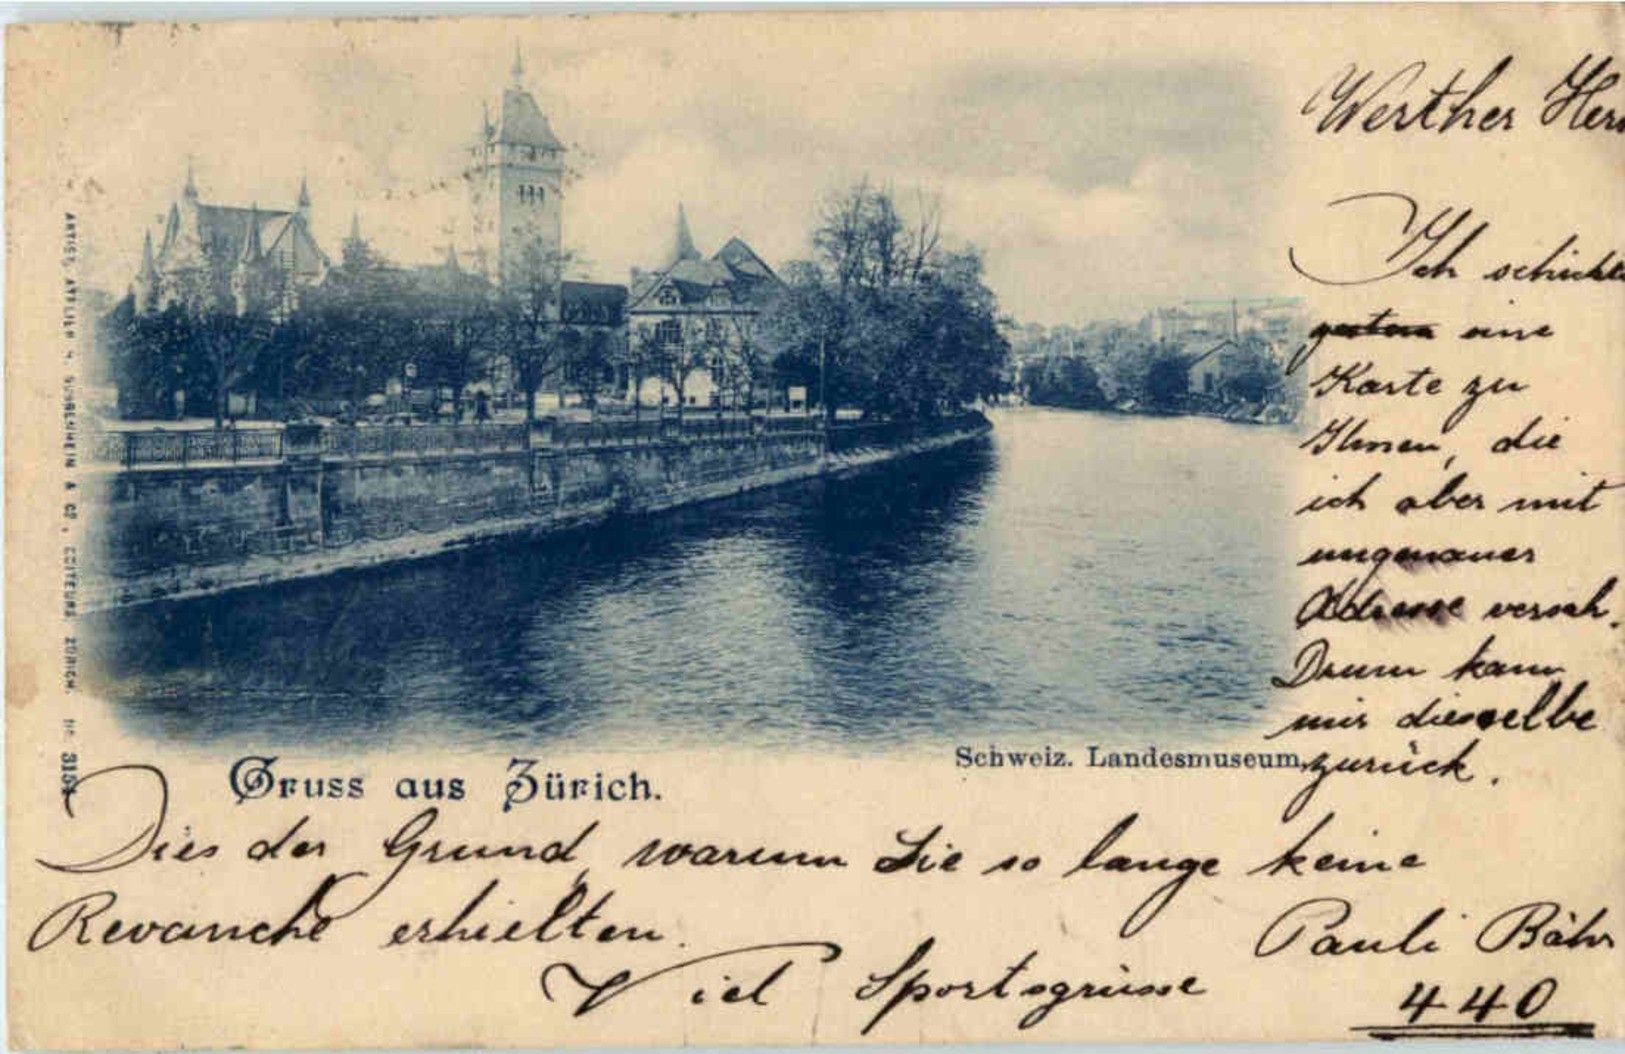 Werther Herr
Ich schickte
gestern eine
Karte zu
Ihnen, die
ich aber mit
ungenauer
Adresse versah.
Drum kam
mir dieselbe
zurück.
Schweiz. Landesmuseum.
Gruss aus Zürich.
Dies der Grund, warum Sie so lange keine
Revanche erhielten.
Viel Sportsgrüsse
Pauli Bähr
440
ARTIST. ATELIER H. GUGGENHEIM & Co., EDITEURS ZÜRICH. No